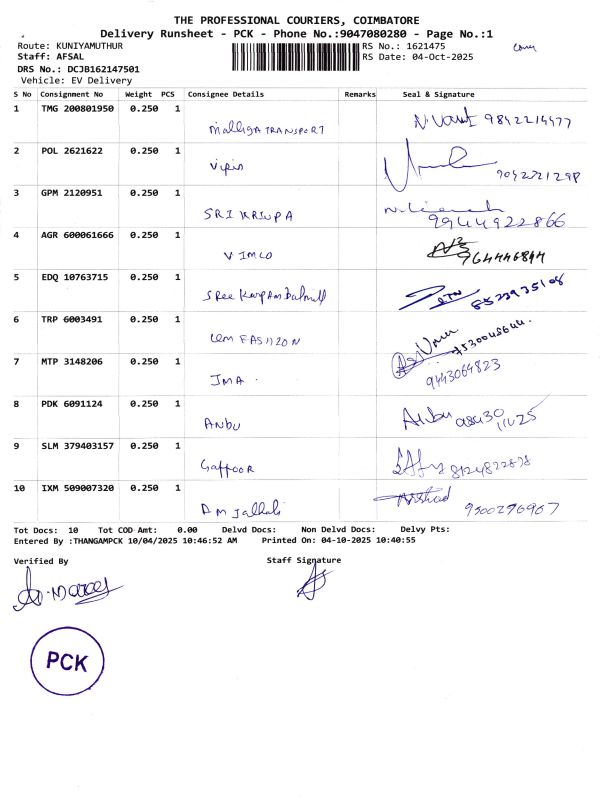 THE PROFESSIONAL COURIERS, COIMBATORE
Delivery Runsheet - PCK - Phone No.:9047080280 - Page No.:1
Route: KUNIYAMUTHUR RS No.: 1621475
Staff: AFSAL RS Date: 04-Oct-2025
DRS No.: DCJB162147501
Vehicle: EV Delivery
S No Consignment No Weight PCS Consignee Details Remarks Seal & Signature
1 TMG 200801950 0.250 1
Malliga TRANSPORT 9842214477
2 POL 2621622 0.250 1
Vipin
3 GPM 2120951 0.250 1
SRI KRIUPA 9944922866
4 AGR 600061666 0.250 1
VIMCO
5 EDQ 10763715 0.250 1
Sree
6 TRP 6003491 0.250 1
7 MTP 3148206 0.250 1
JMA 9443064823
8 PDK 6091124 0.250 1
ANBU Anbu
9 SLM 379403157 0.250 1
Gaffoor
10 IXM 509007320 0.250 1
Arshad
Tot Docs: 10 Tot COD Amt: 0.00 Delvd Docs: Non Delvd Docs: Delvy Pts:
Entered By :THANGAMPCK 10/04/2025 10:46:52 AM Printed On: 04-10-2025 10:40:55
Verified By Staff Signature
PCK